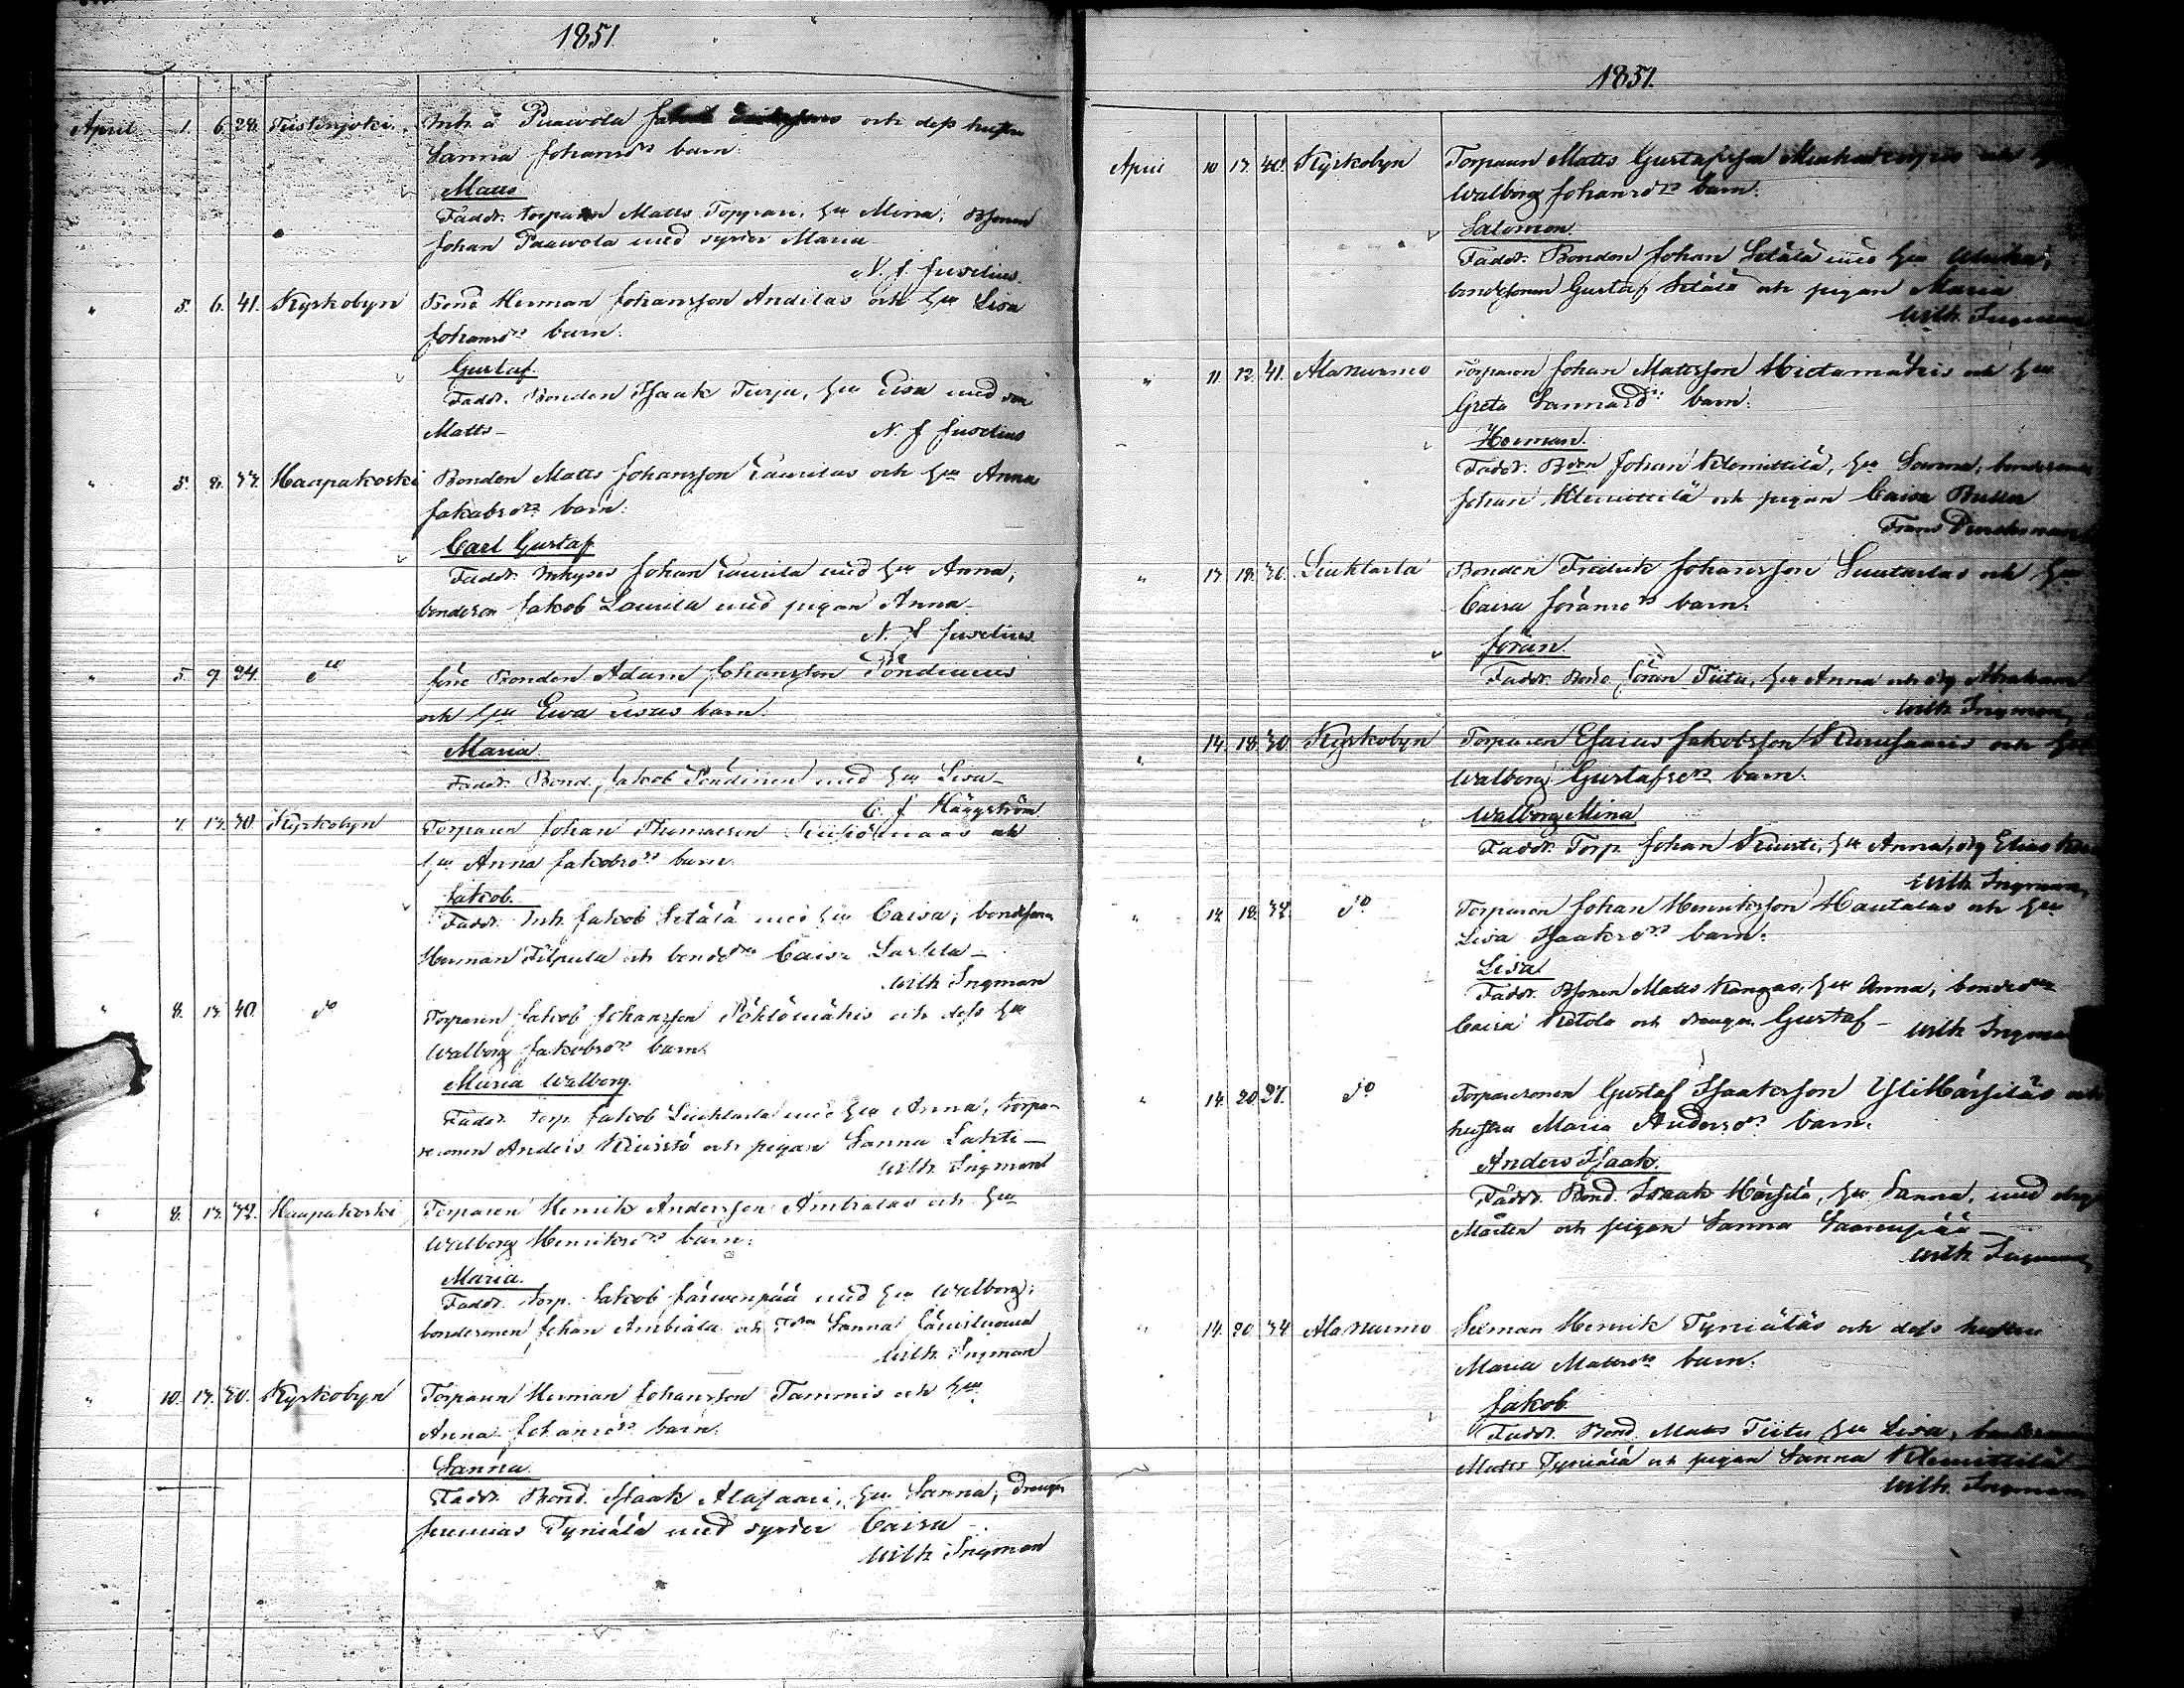 1851.
April 1. 6. 28. Tiistenjoki. Inh. å Paavola och dess hustru
Sanna Johansdr barn.
Matts
Faddr. torparen Matts Toppari, hu Mina; Bsonen
Johan Paavola med syster Maria
N. J. Juselius.
" 5. 6. 41. Kyrkobyn Bond Herman Johansson Andilas och hu Lisa
Johansdr barn.
Gustaf.
Faddr. Bonden Isaak Turja, hu Lisa med son
Matts – N. J Juselius
" 5. 8. 37. Haapakoski Bonden Matts Johansson Laurilas och hu Anna
Jakobsdr barn.
Carl Gustaf
Faddr. Inhyses Johan Laurila med hu Anna;
bondeson Jakob Laurila med pigan Anna –
N. J Juselius.
" 5. 9. 24. do före Bonden Adam Johansson
och hu Eva barn.
Maria
Faddr. Bond. Jakob Pöndinen med hu Lisa –
C. J Häggström
" 7. 13. 30. Kyrkobyn Torparen Johan Thomasson och
hu Anna Jakobsdr barn.
Jakob.
Faddr. Inh. Jakob Setälä med hu Caisa; bondeson
Herman Filpula och bondedr Caisa Lassila –
Wilh Ingman
" 8. 13. 40. do Torparen Jakob Johansson Pöhlömäkis och dess hu
Walborg Jakobsdr barn.
Maria Walborg.
Faddr. torp. Jakob Liuhtarla med hu Anna, torpa-
resonen Anders Kiuistö och pigan Sanna Lahti –
Wilh Ingman
" 8. 13. 32. Haapakoski Torparen Henrik Andersson Ambialas och hu
Walborg Henriksdr barn.
Maria.
Faddr. torp. Jakob Järvenpää med hu Walborg;
bondesonen Johan Ambiala och Sanna
Wilh Ingman
" 10. 13. 30. Kyrkobyn Torparen Herman Johansson Tammis och hu
Anna Johansdr barn.
Sanna
Faddr. Bond. Isaak Alasaari, hu Sanna; drengen
Jeremias Tyniälä med syster Caisa –
Wilh Ingman
1851.
April 10 13. 40. Kyrkobyn Torparen Matts Gustafsson
Walborg Johansdr barn.
Salomon.
Faddr. Bonden Johan Setälä med hu Ulrika;
bondesonen Gustaf Setälä och pigan Maria
Wilh Ingman
" 11. 12. 41. Alanurmo Torparen Johan Mattsson Hietamäkis och hu
Greta barn.
Herman.
Faddr. Johan Klemittilä, hu Sanna; bondesonen
Johan Klemittilä och pigan Caisa
Frans Durchman
" 13 18. 30. Liuhtarla Bonden Fredrik Johansson och hu
Caisa Göransdr barn.
Göran.
Faddr. Bond Göran Tiitu, hu Anna och drg Abraham
Wilh Ingman
" 14. 18. 30. Kyrkobyn Torparen Esaias Jakobsson och hu
Walborg Gustafsdr barn.
Walborg Mina
Faddr. Torp. Johan hu Anna, drg Elias
Wilh Ingman
" 14. 18. 32. do Torparen Johan Henriksson Hautalas och hu
Lisa Isaaksdr barn.
Lisa
Faddr. Bsonen Matts Kangas, hu Anna; bondedr
Caisa Ketola och drengen Gustaf – Wilh Ingman
" 14. 20. 27. do Torparesonen Gustaf Isaaksson YliHärsiläs och
hustru Maria Andersdr barn.
Anders Isaak.
Faddr. Bond. Isaak Härsilä, hu Sanna, med drg
Mårten och pigan Sanna Saarenpää –
Wilh Ingman
" 14. 20. 34 Alanurmo Henrik Tyniäläs och dess hustru
Maria Mattsdr barn.
Jakob.
Faddr. Bond. Matts Tiitu hu Lisa, bondesonen
Matts Tyniälä och pigan Sanna Klemittilä
Wilh. Ingman